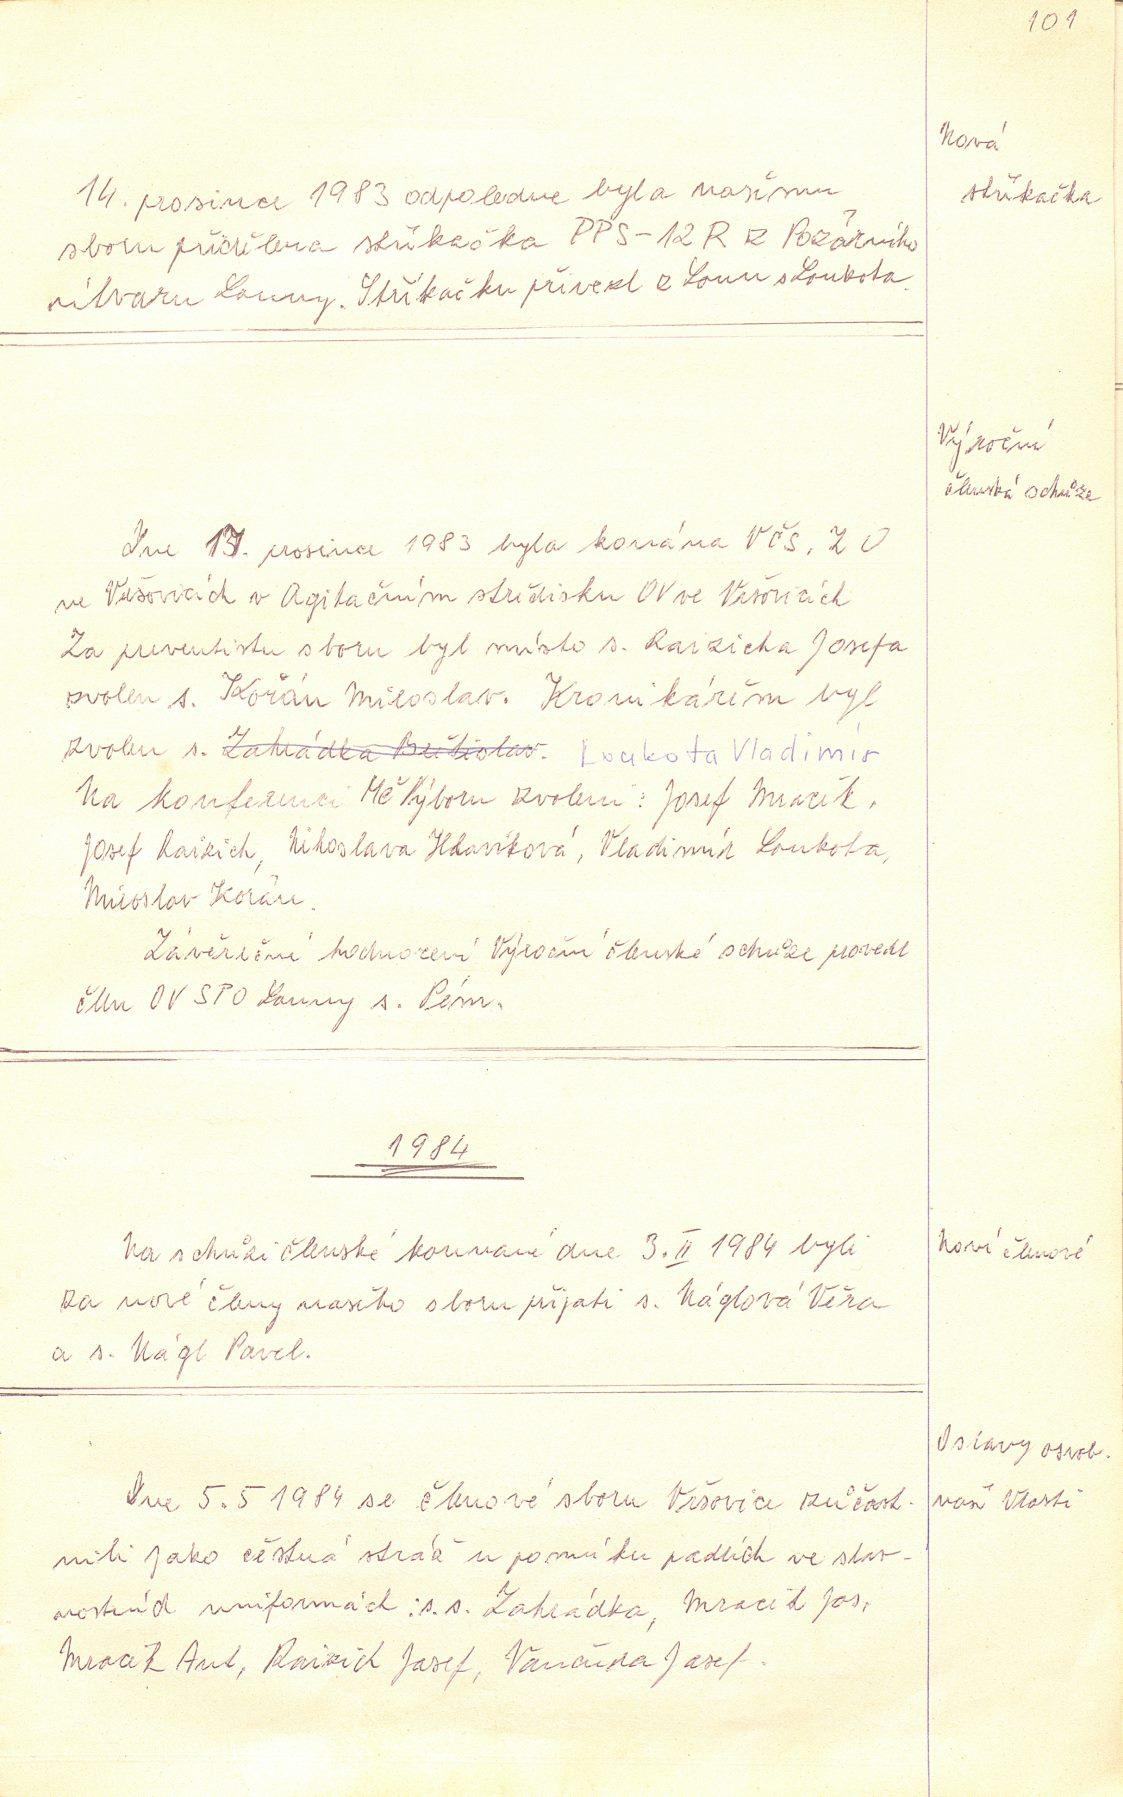 101
Nová
stříkačka
14. prosince 1983 odpoledne byla našemu
sboru přidělena stříkačka PPS-12 R z Požárního
útvaru Louny. Stříkačku přivezl z Loun s Loukota.
Výroční
členská schůze
Dne 17. prosince 1983 byla konána VČS, ZO
ve Vršovicích v Agitačním středisku OV ve Vršovicích
Za preventistu sboru byl místo s. Raizicha Josefa
zvolen s. Kořán Miloslav. Kronikářem byl
zvolen s. Zahrádka Břetislav. Loukota Vladimír
Na konferenci Výboru zvoleni: Josef Mracík,
Josef Raizich, Vladimír Loukota,
Miloslav Kořán.
Závěrečné hodnocení Výroční členské schůze provedl
člen OV SPO Louny s. Pém.
1984
Na schůzi členské konané dne 3. II 1984 byli
Noví členové
za nové členy našeho sboru přijati s. Náglová Věra
a s. Nágl Pavel.
Oslavy osvob.
Dne 5.5 1984 se členové sboru Vršovice zúčast-
naší Vlasti
nili jako čestná stráž u pomníku padlých ve slav-
nostních uniformách: s.s. Zahrádka, Mracík Jos,
Mracík Ant, Raizich Josef, Josef.